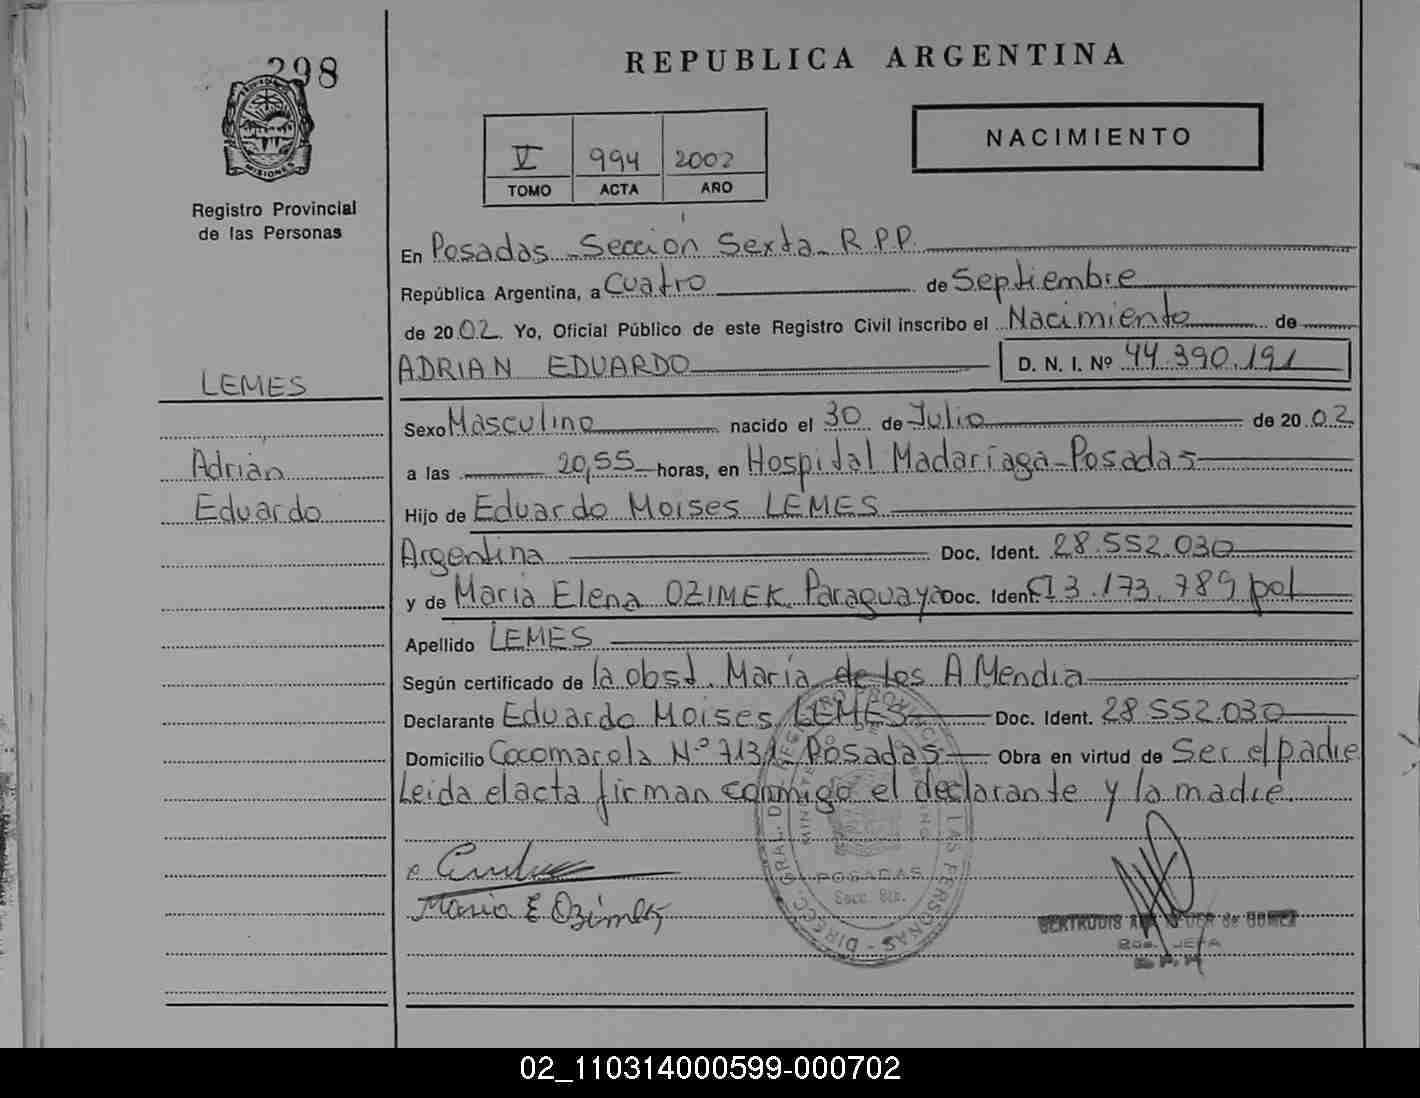 298
MISIONES
Registro Provincial
de las Personas
REPUBLICA ARGENTINA
NACIMIENTO
V 994 2002
TOMO ACTA AÑO
En Posadas - Sección Sexta - R.P.P.
República Argentina, a Cuatro de Septiembre
de 2002. Yo, Oficial Público de este Registro Civil inscribo el Nacimiento de
ADRIAN EDUARDO D. N. I. Nº 44.390.191
LEMES
Adrián
Eduardo
Sexo Masculino nacido el 30 de Julio de 2002
a las 20,55 horas, en Hospital Madariaga - Posadas
Hijo de Eduardo Moises LEMES
Argentina Doc. Ident. 28.552.030
y de Maria Elena OZIMEK Paraguaya Doc. Ident. CI 3.173.789 pol
Apellido LEMES
Según certificado de la obst. María de los A Mendia
Declarante Eduardo Moises LEMES Doc. Ident. 28 552.030
Domicilio Cocomarola Nº 7131 - Posadas Obra en virtud de Ser el padre
Leida el acta firman conmigo el declarante y la madre
Maria E Ozimek
POSADAS
GERTRUDIS de GOMEZ
JEFA
02_110314000599-000702